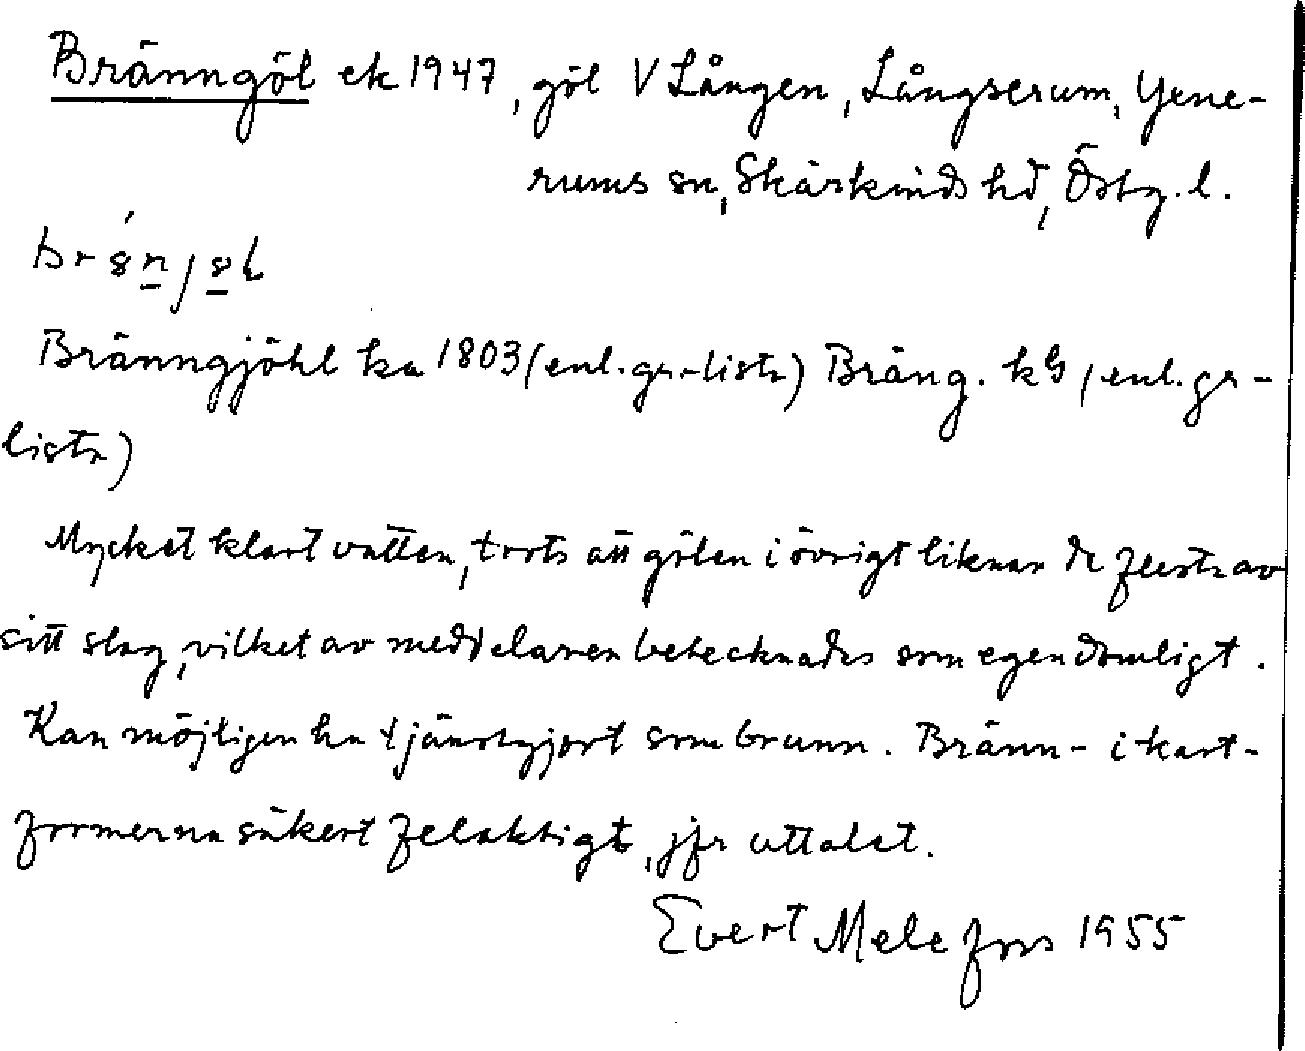 Bränngöl ek 1947, göl V Lången, Långserum, Yene-
rums sn, Skärkinds hd, Östg. l.
Bränngjöhl ka 1803 (enl. gr-lista) Bräng. kG (enl. gr-
lista)
Mycket klart vatten, trots att gölen i övrigt liknar de flesta av
sitt slag, vilket av meddelaren betecknades som egendomligt.
Kan möjligen ha tjänstgjort som brunn. Bränn- i kart-
formerna säkert felaktigt, jfr uttalet.
Evert Melefors 1955